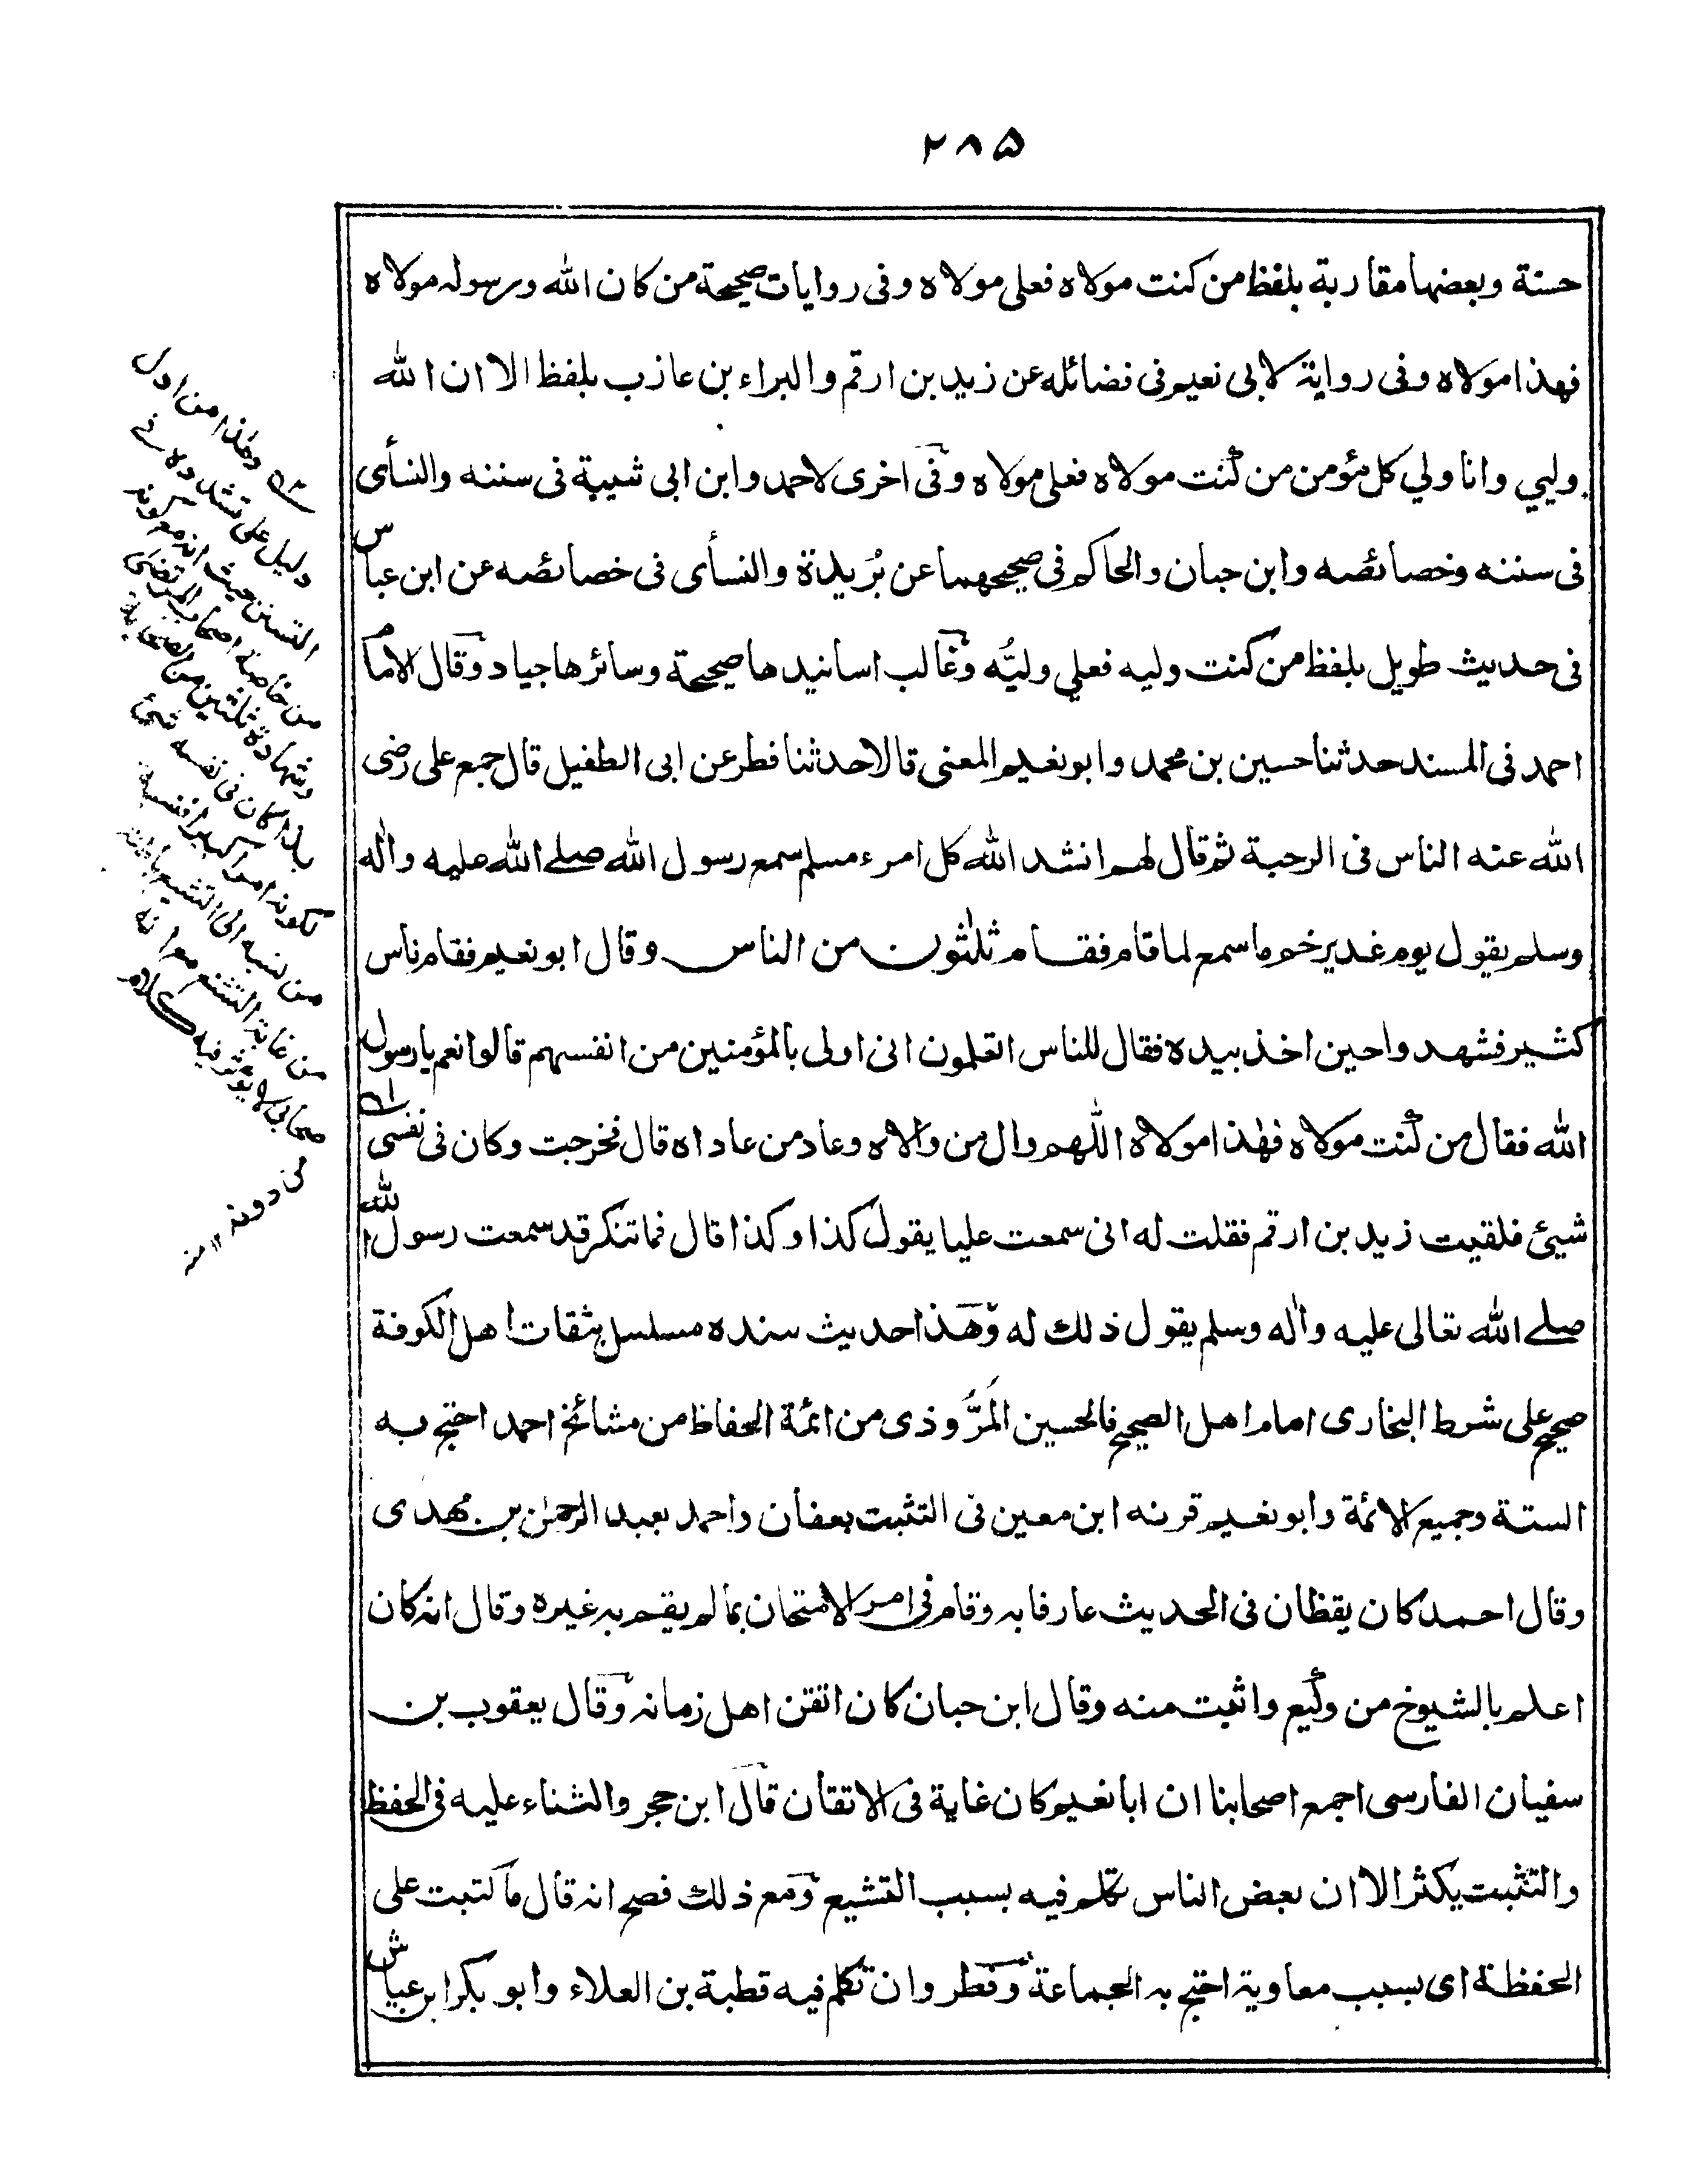 ٢٨۵
حسنة وبعضها مقاربة بلفظ من كنت مولاه فعلي مولاه وفى روايات صحيحة من كان الله ورسوله مولاه
فهذا مولاه وفى رواية لابى نعيم فى فضائله عن زيد بن ارقم والبراء بن عازب بلفظ الا ان الله
وليي وانا ولي كل مؤمن من كنت مولاه فعلى مولاه وفى اخرى لاحمد وابن ابى شيبة فى سننه والنسأى
فى سننه وخصائصه وابن حبان والحاكم فى صحيحهما عن بُريدة والنسأى فى خصائصه عن ابن عباس
فى حديث طويل بلفظ من كنت وليه فعلي وليُّه وغالب اسانيدها صحيحة وسائرها جياد وقال الامام
احمد فى المسند حدثنا حسين بن محمد وابو نعيم المعنى قالا حدثنا فطر عن ابى الطفيل قال جمع على رضى
الله عنه الناس فى الرحبة ثم قال لهم انشد الله كل امرء مسلم سمع رسول الله صلے الله عليه واٰله
وسلم يقول يوم غدير خم ما سمع لما قام فقام ثلٰثون من الناس وقال ابو نعيم فقام ناس
كثير فشهدوا حين اخذ بيده فقال للناس اتعلمون انى اولى بالمؤمنين من انفسهم قالوا نعم يا رسول
الله فقال من كنت مولاه فهٰذا مولاه اللّٰهم وال من والاه وعاد من عاداه قال فخرجت وكان فى نفسى
شيئ فلقيت زيد بن ارقم فقلت له انى سمعت عليا يقول كذا وكذا قال فما تنكر قد سمعت رسول الله
صلے الله تعالى عليه واٰله وسلم يقول ذلك له وهذا حديث سنده مسلسل بثقات اهل الكوفة
صحيح على شرط البخارى امام اهل الصحيح فالحسين المَرُّوذى من ائمة الحفاظ من مشائخ احمد احتج به
الستة وجميع الائمة وابو نعيم قرنه ابن معين فى التثبت بعفان واحمد بعبد الرحمٰن بن مهدى
وقال احمد كان يقظان فى الحديث عارفا به وقام فى امر الامتحان بما لم يقم به غيره وقال انه كان
اعلم بالشيوخ من وكيع واثبت منه وقال ابن حبان كان اتقن اهل زمانه وقال يعقوب بن
سفيان الفارسى اجمع اصحابنا ان ابا نعيم كان غاية فى الاتقان قال ابن حجر والثناء عليه فى الحفظ
والتثبت يكثر الا ان بعض الناس تكلم فيه بسبب التشيع ومع ذلك فصح انه قال ما كتبت على
الحفظة اى بسبب معاوية احتج به الجماعة وفطر وان تكلم فيه قطبة بن العلاء وابو بكر ابن عياش
وهٰذا من ادل
دليل على تشدده فے
التسنن حيث انه مع كونه
من خاصة اصحاب المرتضى
وشهادة ثلثين من الصحابة
بذا كان فى نفسه شئ
لكونه امرا كبيرا
من نسبه الى التشيع
من غاية التشنع مع انه
صحابى لا يؤثر فيه كلام
من دونه ۱۲ منه